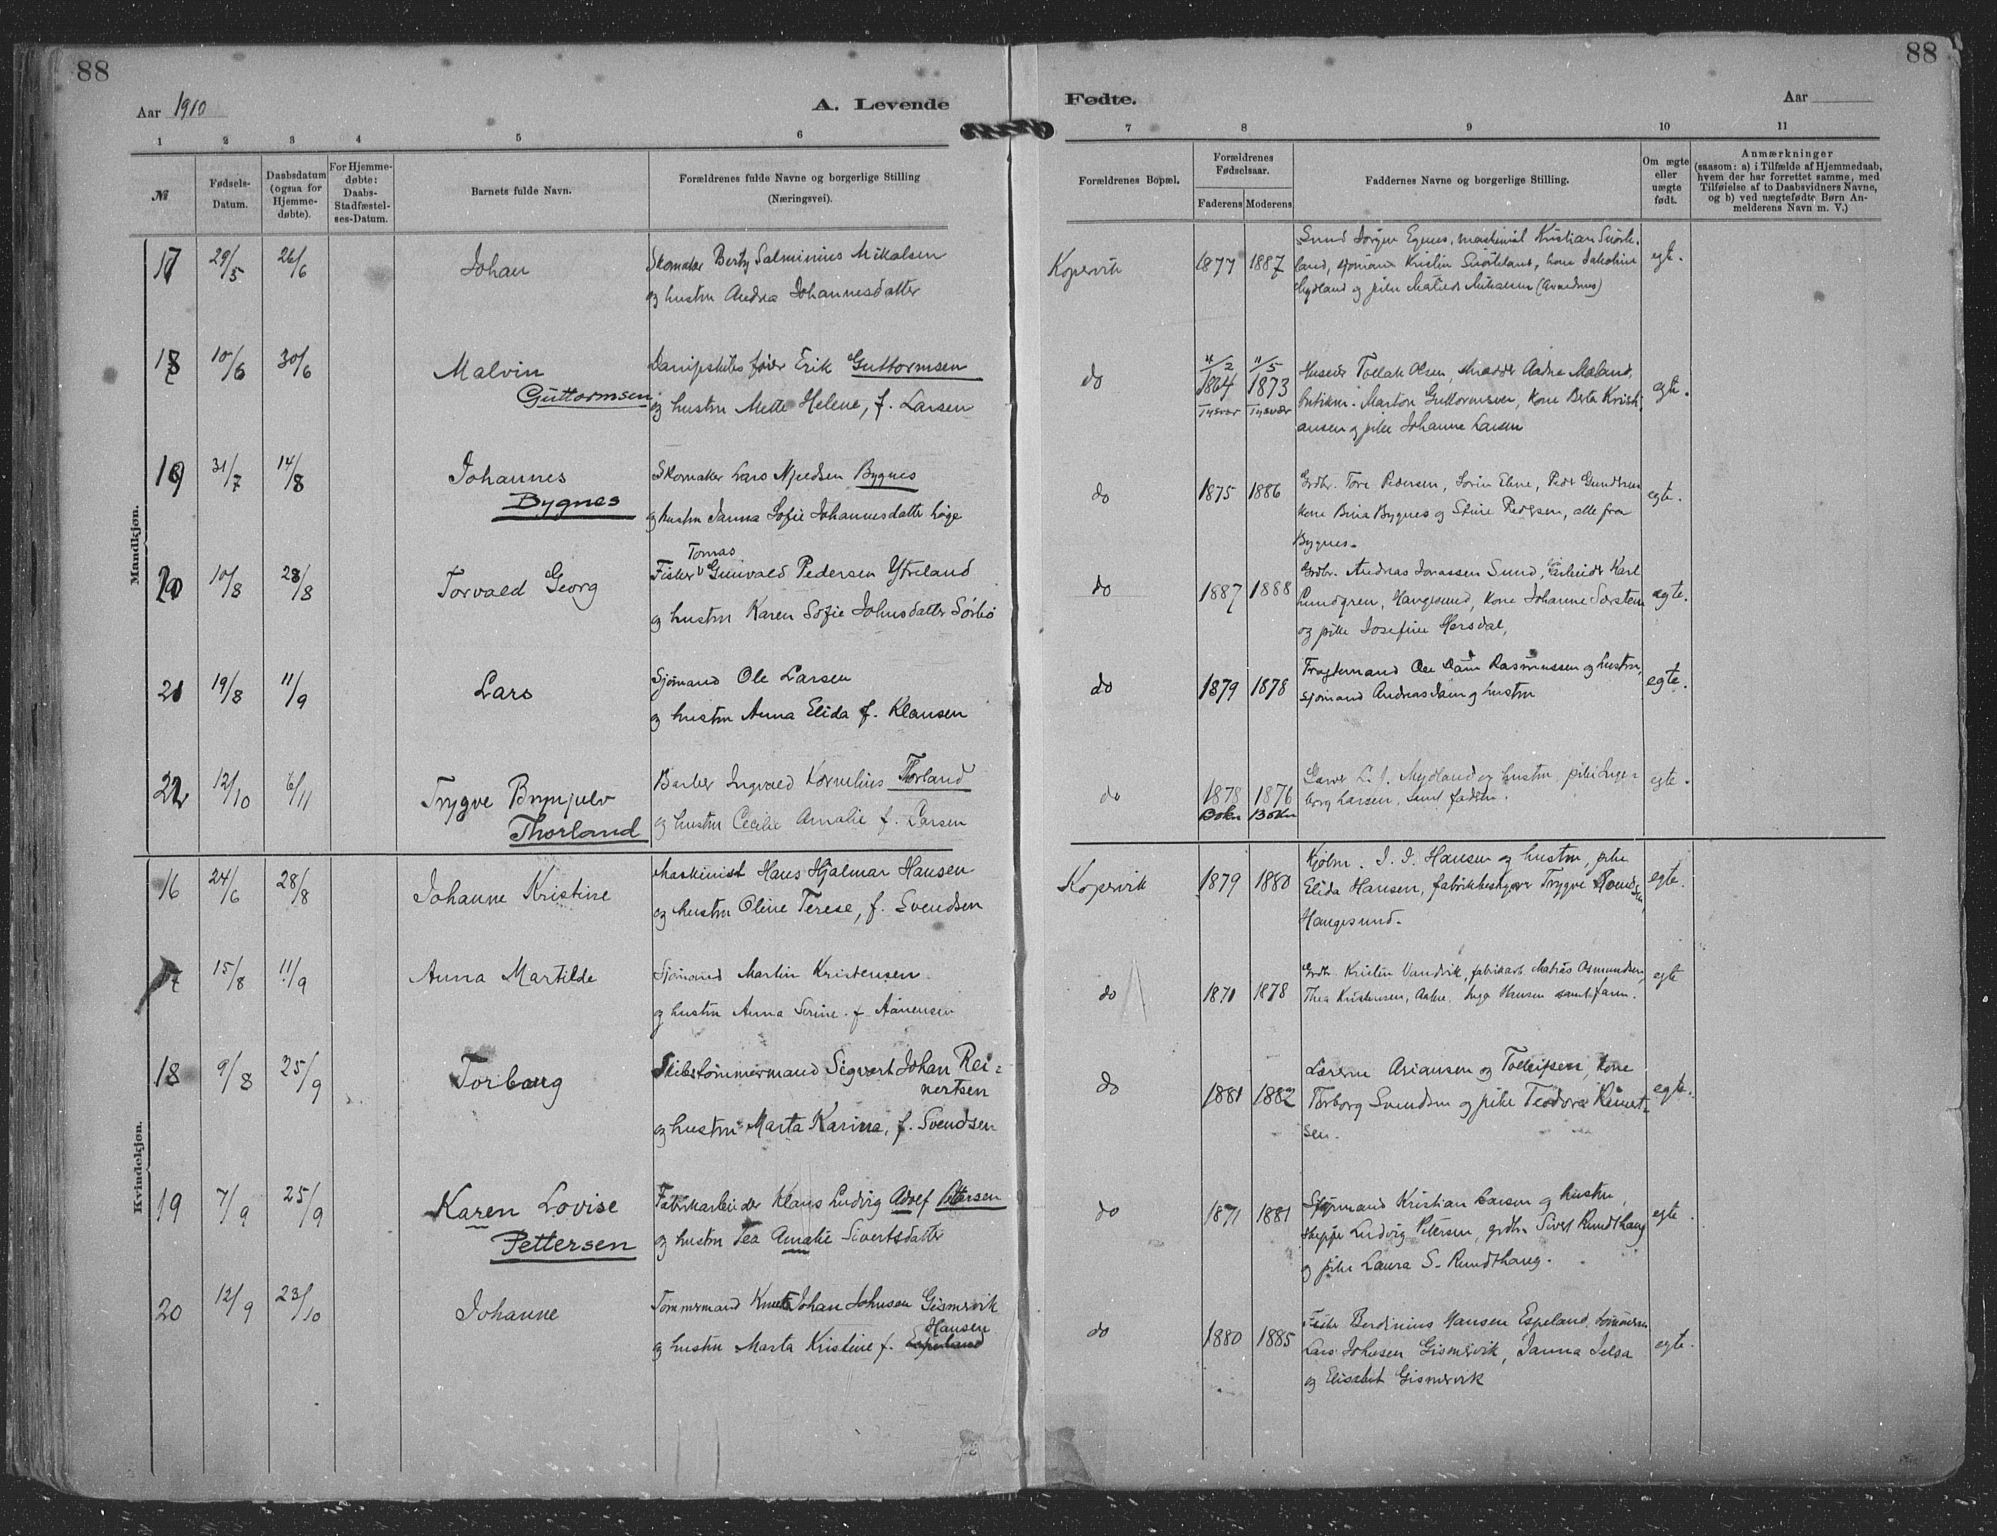 88
88
Aar 1910
A. Levende
Fødte.
Aar
1 2 3 4 5 6 7 8 9 10 11
№
Fødsels-Datum.
Daabsdatum (ogsaa for Hjemme-døbte).
For Hjemme-døbte: Daabs-Stadfæstel-ses-Datum.
Barnets fulde Navn.
Forældrenes fulde Navne og borgerlige Stilling
(Næringsvei).
Forældrenes Bopæl.
Forældrenes Fødselsaar.
Faderens Moderens
Faddernes Navne og borgerlige Stilling.
Om ægte eller uægte født.
Anmærkninger
(saasom: a) i Tilfælde af Hjemmedaab,
hvem der har forrettet samme, med
Tilføielse af to Daabsvidners Navne,
og b) ved uægtefødte Børn An-
melderens Navn m. V.)
Mandkjøn.
17 29/5 26/6 Johan
Skomaker Salminius Mikalsen
og hustru Andrea Johannesdatter
Kopervik 1877 1887
Jørgen Egnes, maskinist Kristian
land, sjømand Kristin kone Jakobine
Mydland og pike
egt.
18 10/6 30/6 Malvin
Guttormsen
Dampskibsfører Erik Guttormsen
og hustru Mette Helene, f. Larsen
do
4/2 11/5
1864 1873
Tysvær Tysvær
Tollak Olsen, Aadne Mæland,
Marton Guttormsen, kone Berta Krist-
ansen og pike Johanne Larsen
egt.
19 31/7 14/8 Johannes
Bygnes
Skomaker Lars Bygnes
og hustru Janna Sofie Johannesdatter
do 1875 1886
Grdbr. Tore Pedersen, Peder Gundersen
kone Bygnes og Stine Pedersen, alle fra
Bygnes.
egte.
20 10/8 28/8 Torvald Georg
Tomas
Fisker Gunvald Pedersen Ytreland
og hustru Karen Sofie Johnsdatter Sørbø
do 1887 1888
Grdbr. Andreas Jonassen Sund, Karl
Lundgren, Haugesund, kone Johanne
og pike Josefine
ægte.
21 19/8 11/9 Lars
Sjømand Ole Larsen
og hustru Anna Elida f. Klausen
do 1879 1878
Fragtemand Ole Dam Rasmussen og hustru,
sjømand Andreas Dam og hustru
egte.
22 12/10 6/11 Trygve Brynjulv
Thorland
Barber Ingvald Kornelius Thorland
og hustru Cecilie Amalie f. Larsen
do 1878 1876
Bokn Bokn
Garver L. J. Mydland og hustru, pike Inge-
borg Larsen, samt fadren.
egte.
Kvindekjøn.
16 24/6 28/8 Johanne Kristine
Maskinist Hans Hjalmar Hansen
og hustru Oline Terese, f. Svendsen
Kopervik 1879 1880
Kjøbm. J. J. Hansen og hustru, pike
Elida Hansen, fabrikbestyrer Trygve
Haugesund.
egte.
17 15/8 11/9 Anna Martilde
Sjømand Martin Kristensen
og hustru Anna Serine f. Aanensen
do 1871 1878
Grdbr. Kristin Vandvik, fabrikarb. Matias Osmundsen,
Thea Kristensen, Inga Hansen samt faren.
egte
18 9/8 25/9 Torborg
Skibstømmermand Sigvart Johan Rei-
nertsen
og hustru Marta Karina, f. Svendsen
do 1881 1882
Lærerne Ariansen og Tolleifsen, kone
Torborg Svendsen og pike Teodora Reinert-
sen.
egte.
19 7/9 25/9 Karen Lovise
Pettersen
Fabrikarbeider Klaus Ludvig Adolf Petersen
og hustru Tea Amalie Sivertsdatter
do 1871 1881
Styrmand Kristian Larsen og hustru,
Ludvig Petersen, grdbr. Sivert Rundhaug
og pike Laura S. Rundhaug.
egte.
20 12/9 23/10 Johanne
Tømmermand Knut Johan Johnsen Gismervik
Hansen
og hustru Marta Kristine f. Espeland
do 1880 1885
Fisker Berdinius Hansen Espeland,
Lars Johnsen Gismervik, Janna Jelsa
og Elisabet Gismervik
egte.